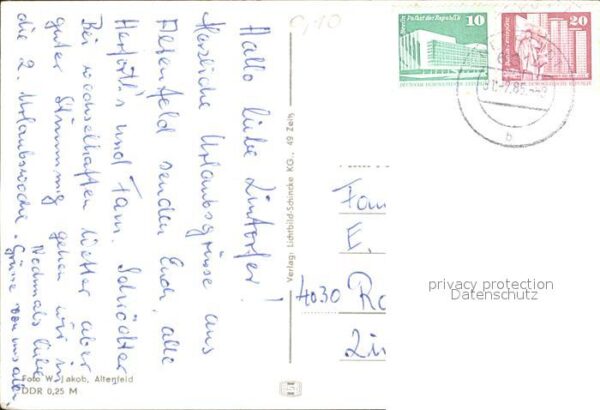 Hallo liebe Lintorfer!
Herzliche Urlaubsgrüsse aus
Altenfeld senden Euch alle
und Fam. Schrödter
Bei wechselhaften Wetter aber
guter Stimmung gehen wir in
die 2. Urlaubswoche.
Nochmals liebe
Grüsse von uns allen
Foto W. Jakob, Altenfeld
DDR 0,25 M
Verlag: Lichtbild-Schincke KG., 49 Zeitz
0,10
Berlin Palast der Republik
10
DEUTSCHE DEMOKRATISCHE REPUBLIK
20
b
Fam
E.
4030 Ra
Lin
privacy protection
Datenschutz